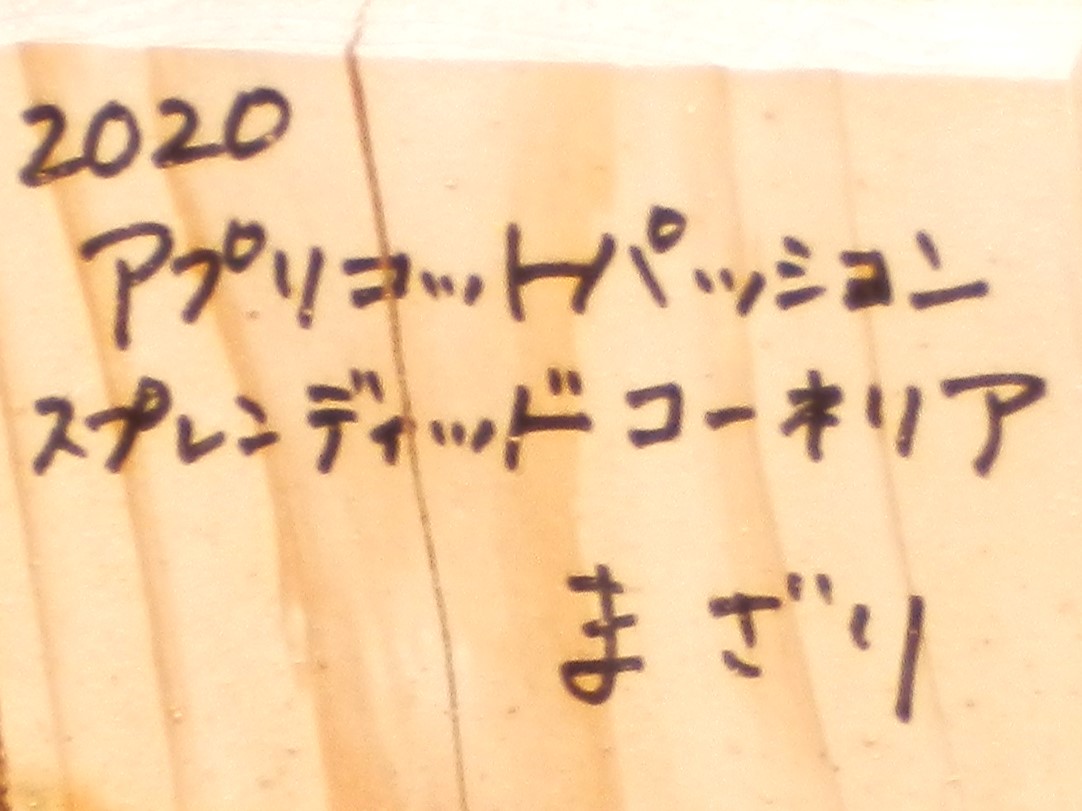 2020
アプリコットパッション
スプレンディッドコーネリア
まざり